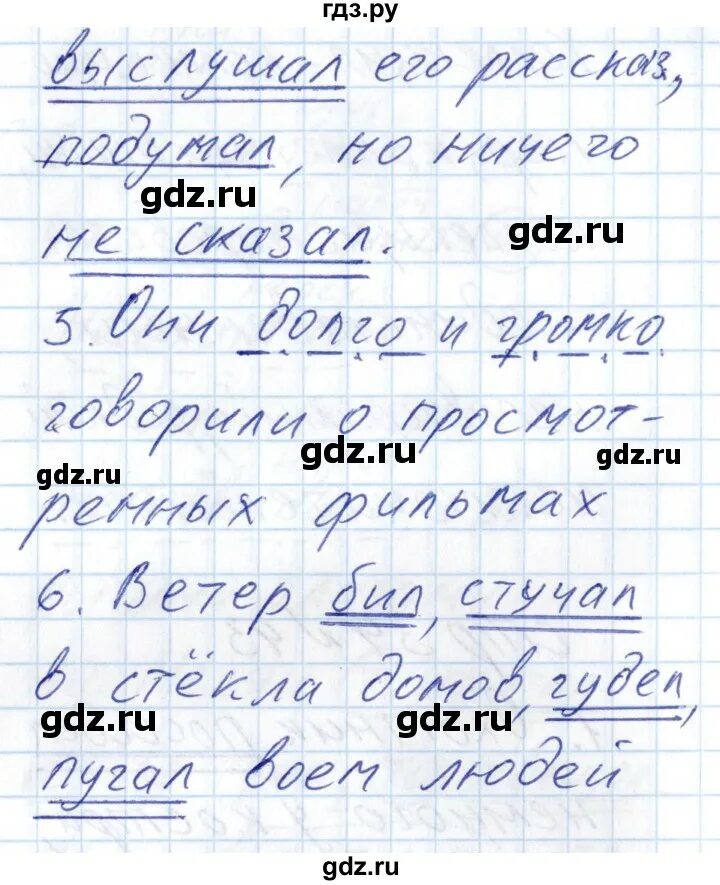 гдз.ру
выслушал его рассказ,
подумал, но ничего
gdz.ru
не сказал.
gdz.ru
5. Они долго и громко
говорили о просмот-
gdz.ru
gdz.ru
ренных фильмах
6. Ветер бил, стучал
в стёкла домов, гудел,
gdz.ru
gdz.ru
пугал воем людей
gdz.ru